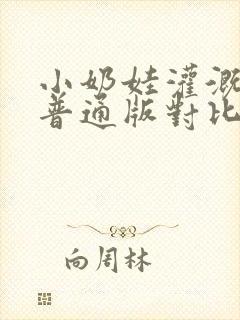 小奶娃灌溉
普通版對比
向周林